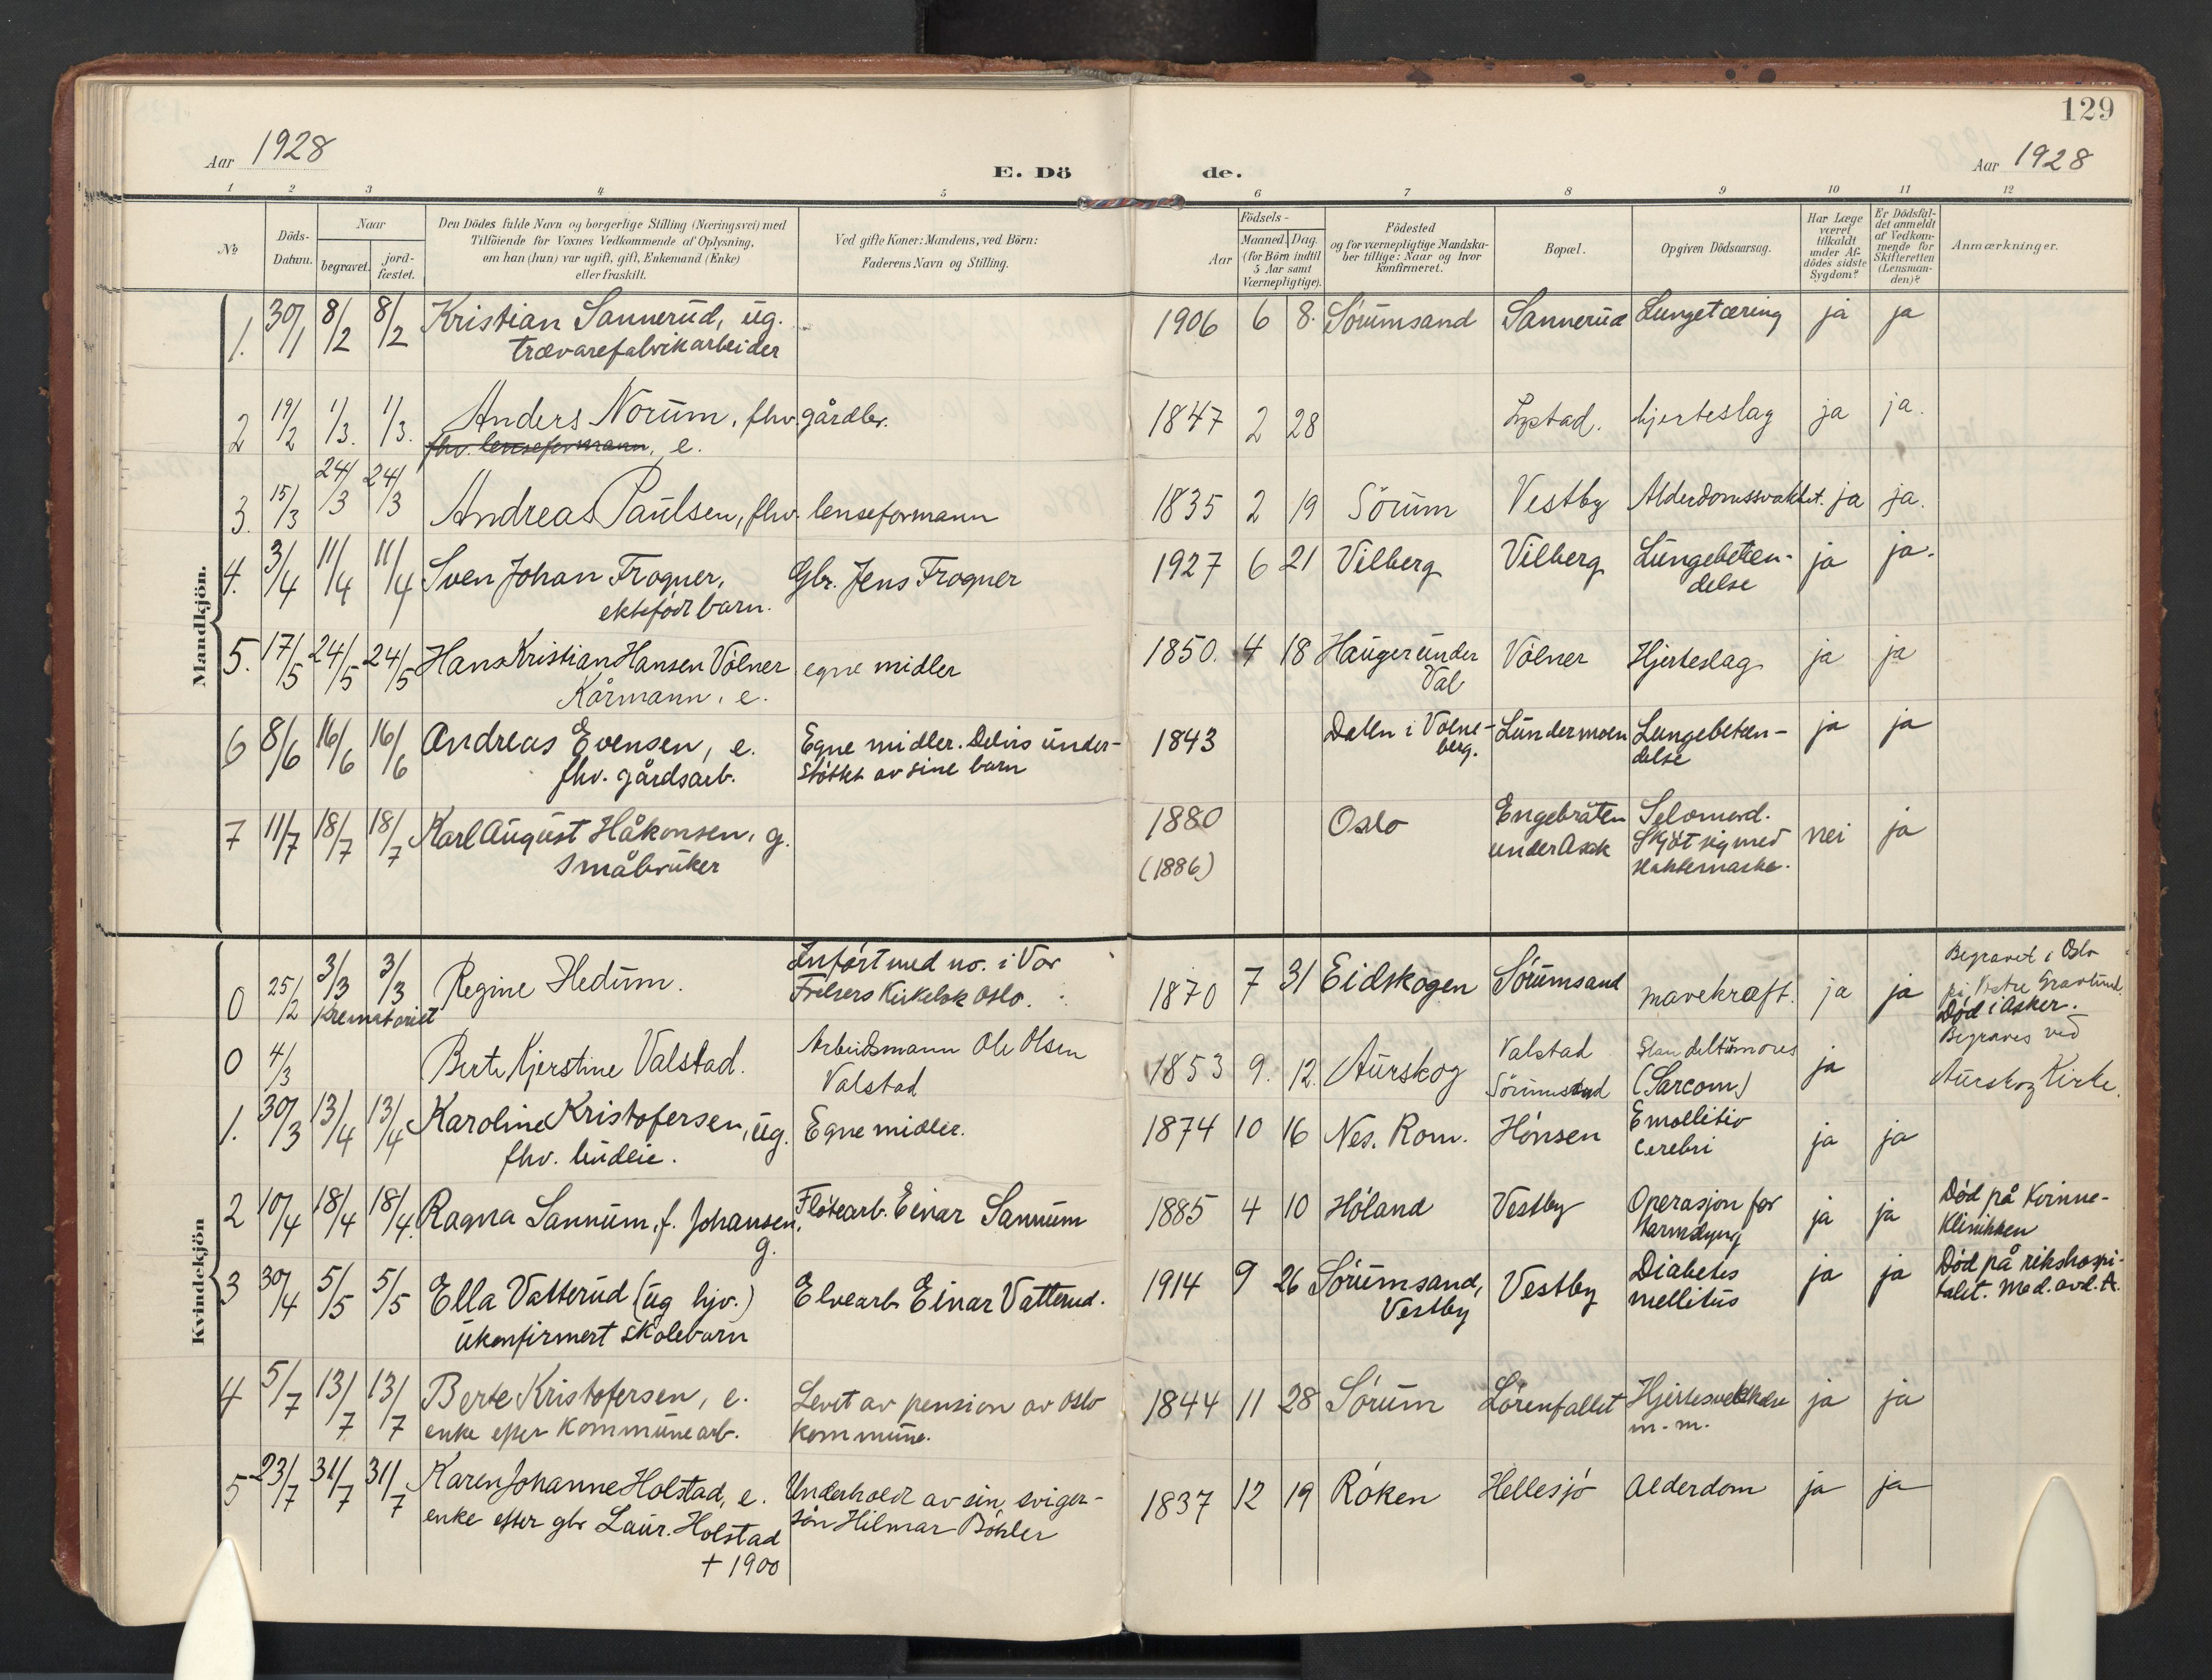 129
Aar 1928
E. Dö de.
Aar 1928
1 2 3 4 5 6 7 8 9 10 11 12
No
Döds-Datum.
Naar
begravet.
jord-fæstet.
Den Dödes fulde Navn og borgerlige Stilling (Næringsvei) med
Tilföiende for Voxnes Vedkommende af Oplysning,
om han (hun) var ugift, gift, Enkemand (Enke)
eller fraskilt.
Ved gifte Koner: Mandens, ved Börn:
Faderens Navn og Stilling.
Födsels-
Aar
Maaned. Dag.
(for Börn indtil
5 Aar samt
Værnepligtige).
Födested
og for værnepligtige Mandska-
ber tillige: Naar og hvor
konfirmeret.
Bopæl.
Opgiven Dödsaarsag.
Har Læge
været
tilkaldt
under Af-
dödes sidste
Sygdom?
Er Dödsfal-
det anmeldt
af Vedkom-
mende for
Skifteretten
(Lensman-
den)?
Anmærkninger.
Mandkjön.
1. 30/1 8/2 8/2 Kristian Sannerud, ug. 1906 6 8. Sörumsand Sannerud Lungetæring ja ja
trævarefabrikarbeider
2 19/2 1/3. 1/3. Anders Norum, fhv. gårdbr. 1847 2 28 hjerteslag ja ja.
fhv. lenseformann, e.
3. 15/3 24/3 24/3 Andreas Paulsen, fhv. lenseformann 1835 2 19 Sörum Vestby Alderdomssvakhet. ja ja.
4. 3/4 11/4 11/4 Sven Johan Frogner, Gbr. Jens Frogner 1927 6 21 Vilberg Vilberg Lungebeten- ja ja.
ektefödt barn. delse
5. 17/5 24/5 24/5 Hans Kristian Hansen Völner egne midler 1850. 4 18 Hauger under Völner Hjerteslag ja ja
Kårmann, e. Val
6 8/6 16/6 16/6 Andreas Evensen, e. Egne midler. Delvis under- 1843 Dalen i Völne- Lundermoen Lungebeten- ja ja
fhv. gårdsarb. stöttet av sine barn berg. delse
7 11/7 18/7 18/7 Karl August Håkonsen, g. 1880 Oslo Engebråten Selvmord. nei ja
småbruker (1886) under Ask Skjöt sig med
slaktemaske.
Kvindekjön
0 25/2 3/3 3/3 Regine Hedum. Infört med no. i Vor 1870 7 31 Eidskogen Sörumsand mavekræft. ja ja Begravet i Oslo
Krematoriet Frelsers Kirkebok Oslo. på Vestre Gravlund.
Död i Asker.
0 4/3 Berte Kjerstine Valstad. Arbeidsmann Ole Olsen 1853 9. 12. Aurskog Valstad ja Begraves ved
Valstad Sörumsand (Sarcom) Aurskog Kirke.
1. 30/3 13/4 13/4 Karoline Kristofersen, ug. Egne midler. 1874 10 16 Nes. Rom. Hönsen Emollitio ja ja
fhv. budeie. cerebri
2 10/4 18/4 18/4. Ragna Sannum, f. Johansen, Flötearb. Einar Sannum 1885 4 10 Höland Vestby Operasjon for ja ja Död på Kvinne-
g. tarmslyng klinikken
3 30/4 5/5 5/5 Ella Vatterud (ug hjv.) Elvearb Einar Vatterud. 1914 9 26 Sörumsand, Vestby Diabetes ja ja Död på rikshospi-
ukonfirmert skolebarn Vestby mellitus talet. Med. avd. A.
4 5/7 13/7 13/7 Berte Kristofersen, e. Levet av pension av Oslo 1844 11 28 Sörum Lörenfallet Hjertesvekkelse ja ja
enke efter kommunearb. kommune. m. m.
5 23/7 31/7 31/7 Karen Johanne Holstad, e. Underholdt av sin sviger- 1837 12 19 Röken Hellesjö Alderdom ja ja
enke efter gbr Laur. Holstad sön Hilmar Böhler
+ 1900